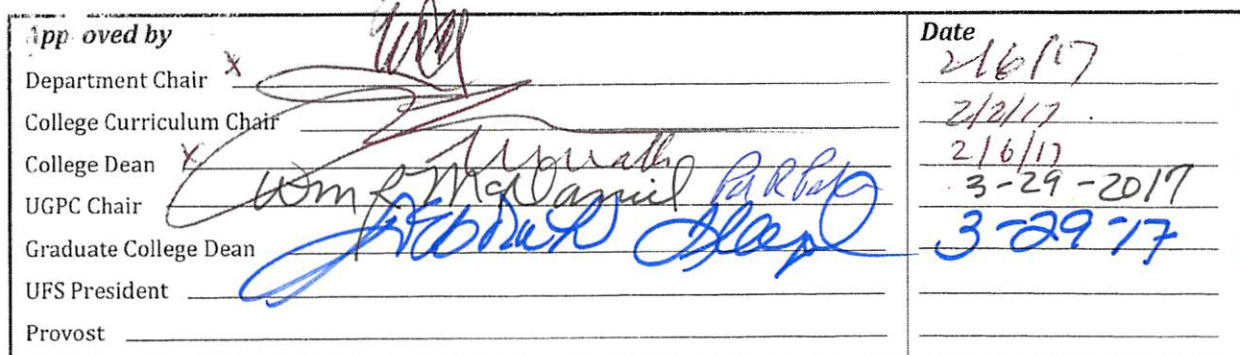 Approved by Date
Department Chair x 2/6/17
College Curriculum Chair 2/2/17
College Dean x 2/6/17
UGPC Chair Wm R McDaniel 3-29-2017
Graduate College Dean Deborah 3-29-17
UFS President
Provost